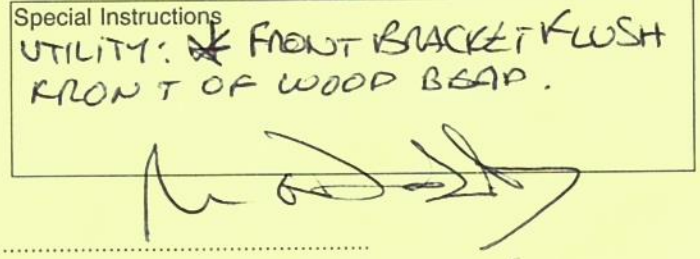 Special Instructions
UTILITY: * FRONT BRACKET FLUSH
FRONT OF WOOD BEAD.